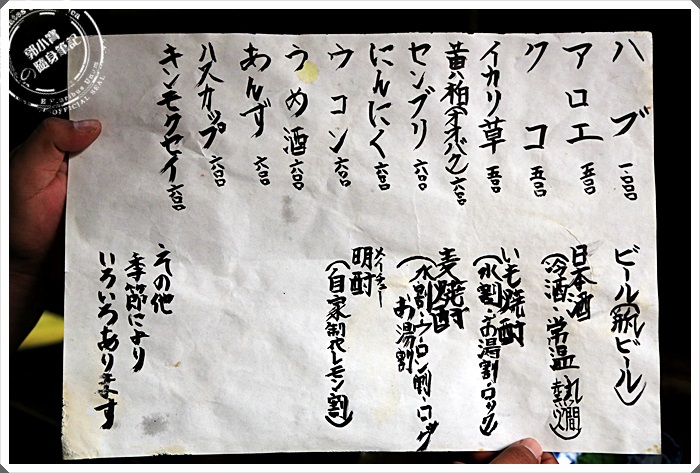 ハブ 一、〇〇〇
アロエ 五〇〇
クコ 五〇〇
イカリ草 五〇〇
黄柏(オオバク) 六〇〇
センブリ 六〇〇
にんにく 六〇〇
ウコン 六〇〇
うめ酒 六〇〇
あんず 六〇〇
ハスカップ 六〇〇
キンモクセイ 六〇〇
ビール(瓶ビール)
日本酒
(冷酒・常温・熱燗)
いも焼酎
(水割・お湯割・ロック)
麦焼酎
(水割・ウーロン割・ロック
お湯割)
明酎
(自家製レモン割)
その他
季節により
いろいろあります
郭小寶
の隨身筆記